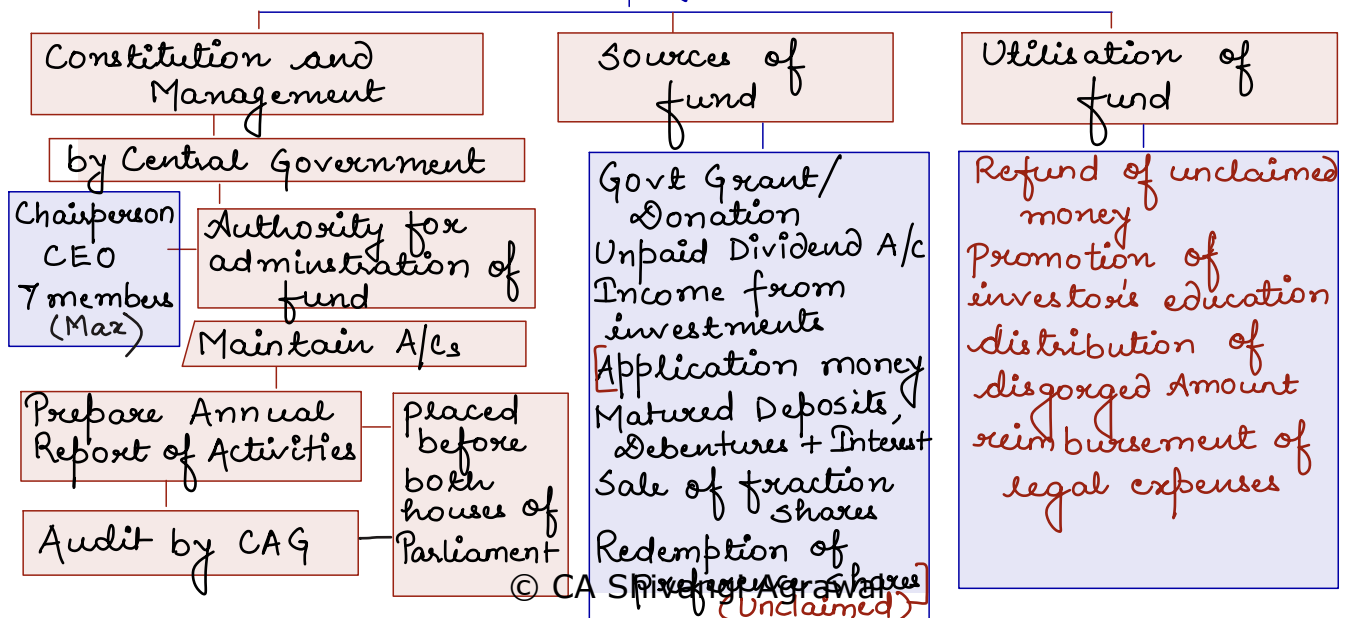 Constitution and
Management
by Central Government
Chairperson
CEO
7 members
(Max)
Authority for
adminstration of
fund
Maintain A/Cs
Prepare Annual
Report of Activities
placed
before
both
houses of
Parliament
Audit by CAG
Sources of
fund
Govt Grant/
Donation
Unpaid Dividend A/c
Income from
investments
Application money
Matured Deposits,
Debentures + Interest
Sale of fraction
shares
Redemption of
preference shares
(Unclaimed)
Utilisation of
fund
Refund of unclaimed
money
Promotion of
investor's education
distribution of
disgorged Amount
reimbursement of
legal expenses
© CA Shivangi Agrawal